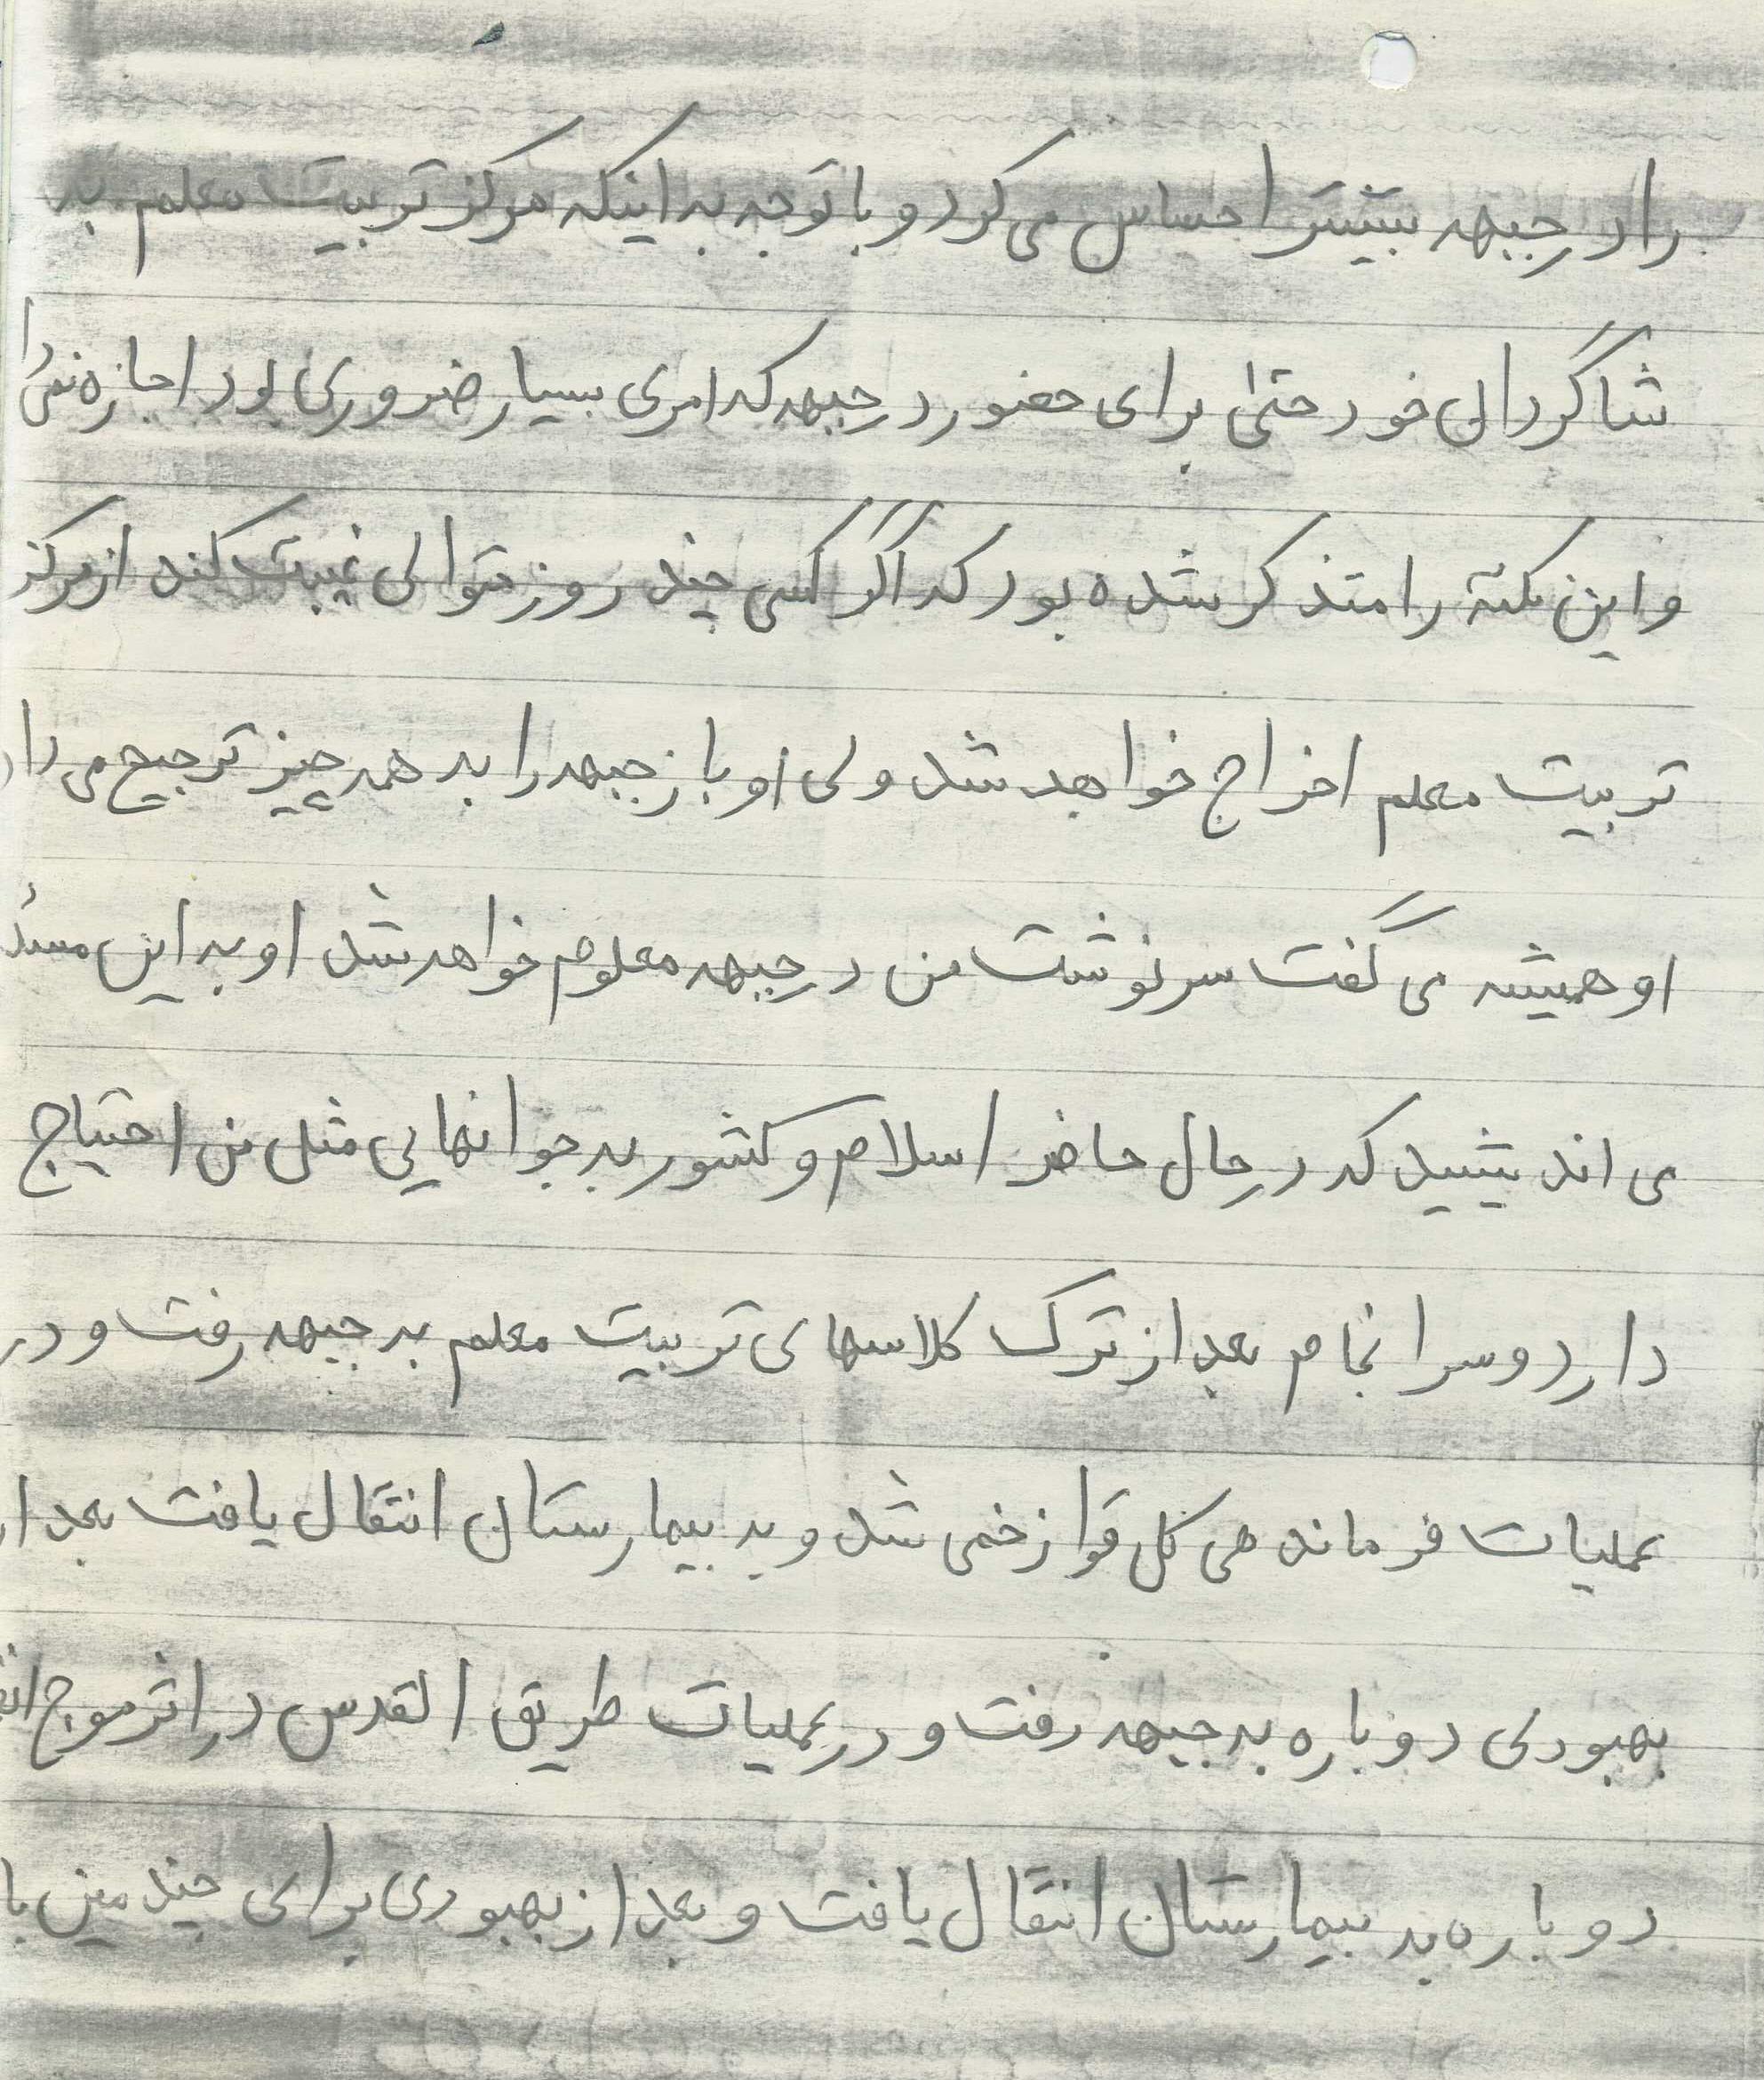 را در جبهه بیشتر احساس می کرد و با توجه به اینکه مرکز تربیت معلم به
شاگردان خود حتی برای حضور در جبهه که امری بسیار ضروری بود اجازه نمی دا
و این نکته را متذکر شده بود که اگر کسی چند روز متوالی غیبت کند از مرکز
تربیت معلم اخراج خواهد شد ولی او باز جبهه را به همه چیز ترجیح می داد
او همیشه می گفت سرنوشت من در جبهه معلوم خواهد شد او به این مسئله
می اندیشید که در حال حاضر اسلام و کشور به جوانهایی مثل من احتیاج
دارد و سرانجام بعد از ترک کلاسهای تربیت معلم به جبهه رفت و در
عملیات فرماندهی کل قوا زخمی شد و به بیمارستان انتقال یافت بعد از
بهبودی دوباره به جبهه رفت و در عملیات طریق القدس در اثر موج
دوباره به بیمارستان انتقال یافت و بعد از بهبودی برای چندمین با